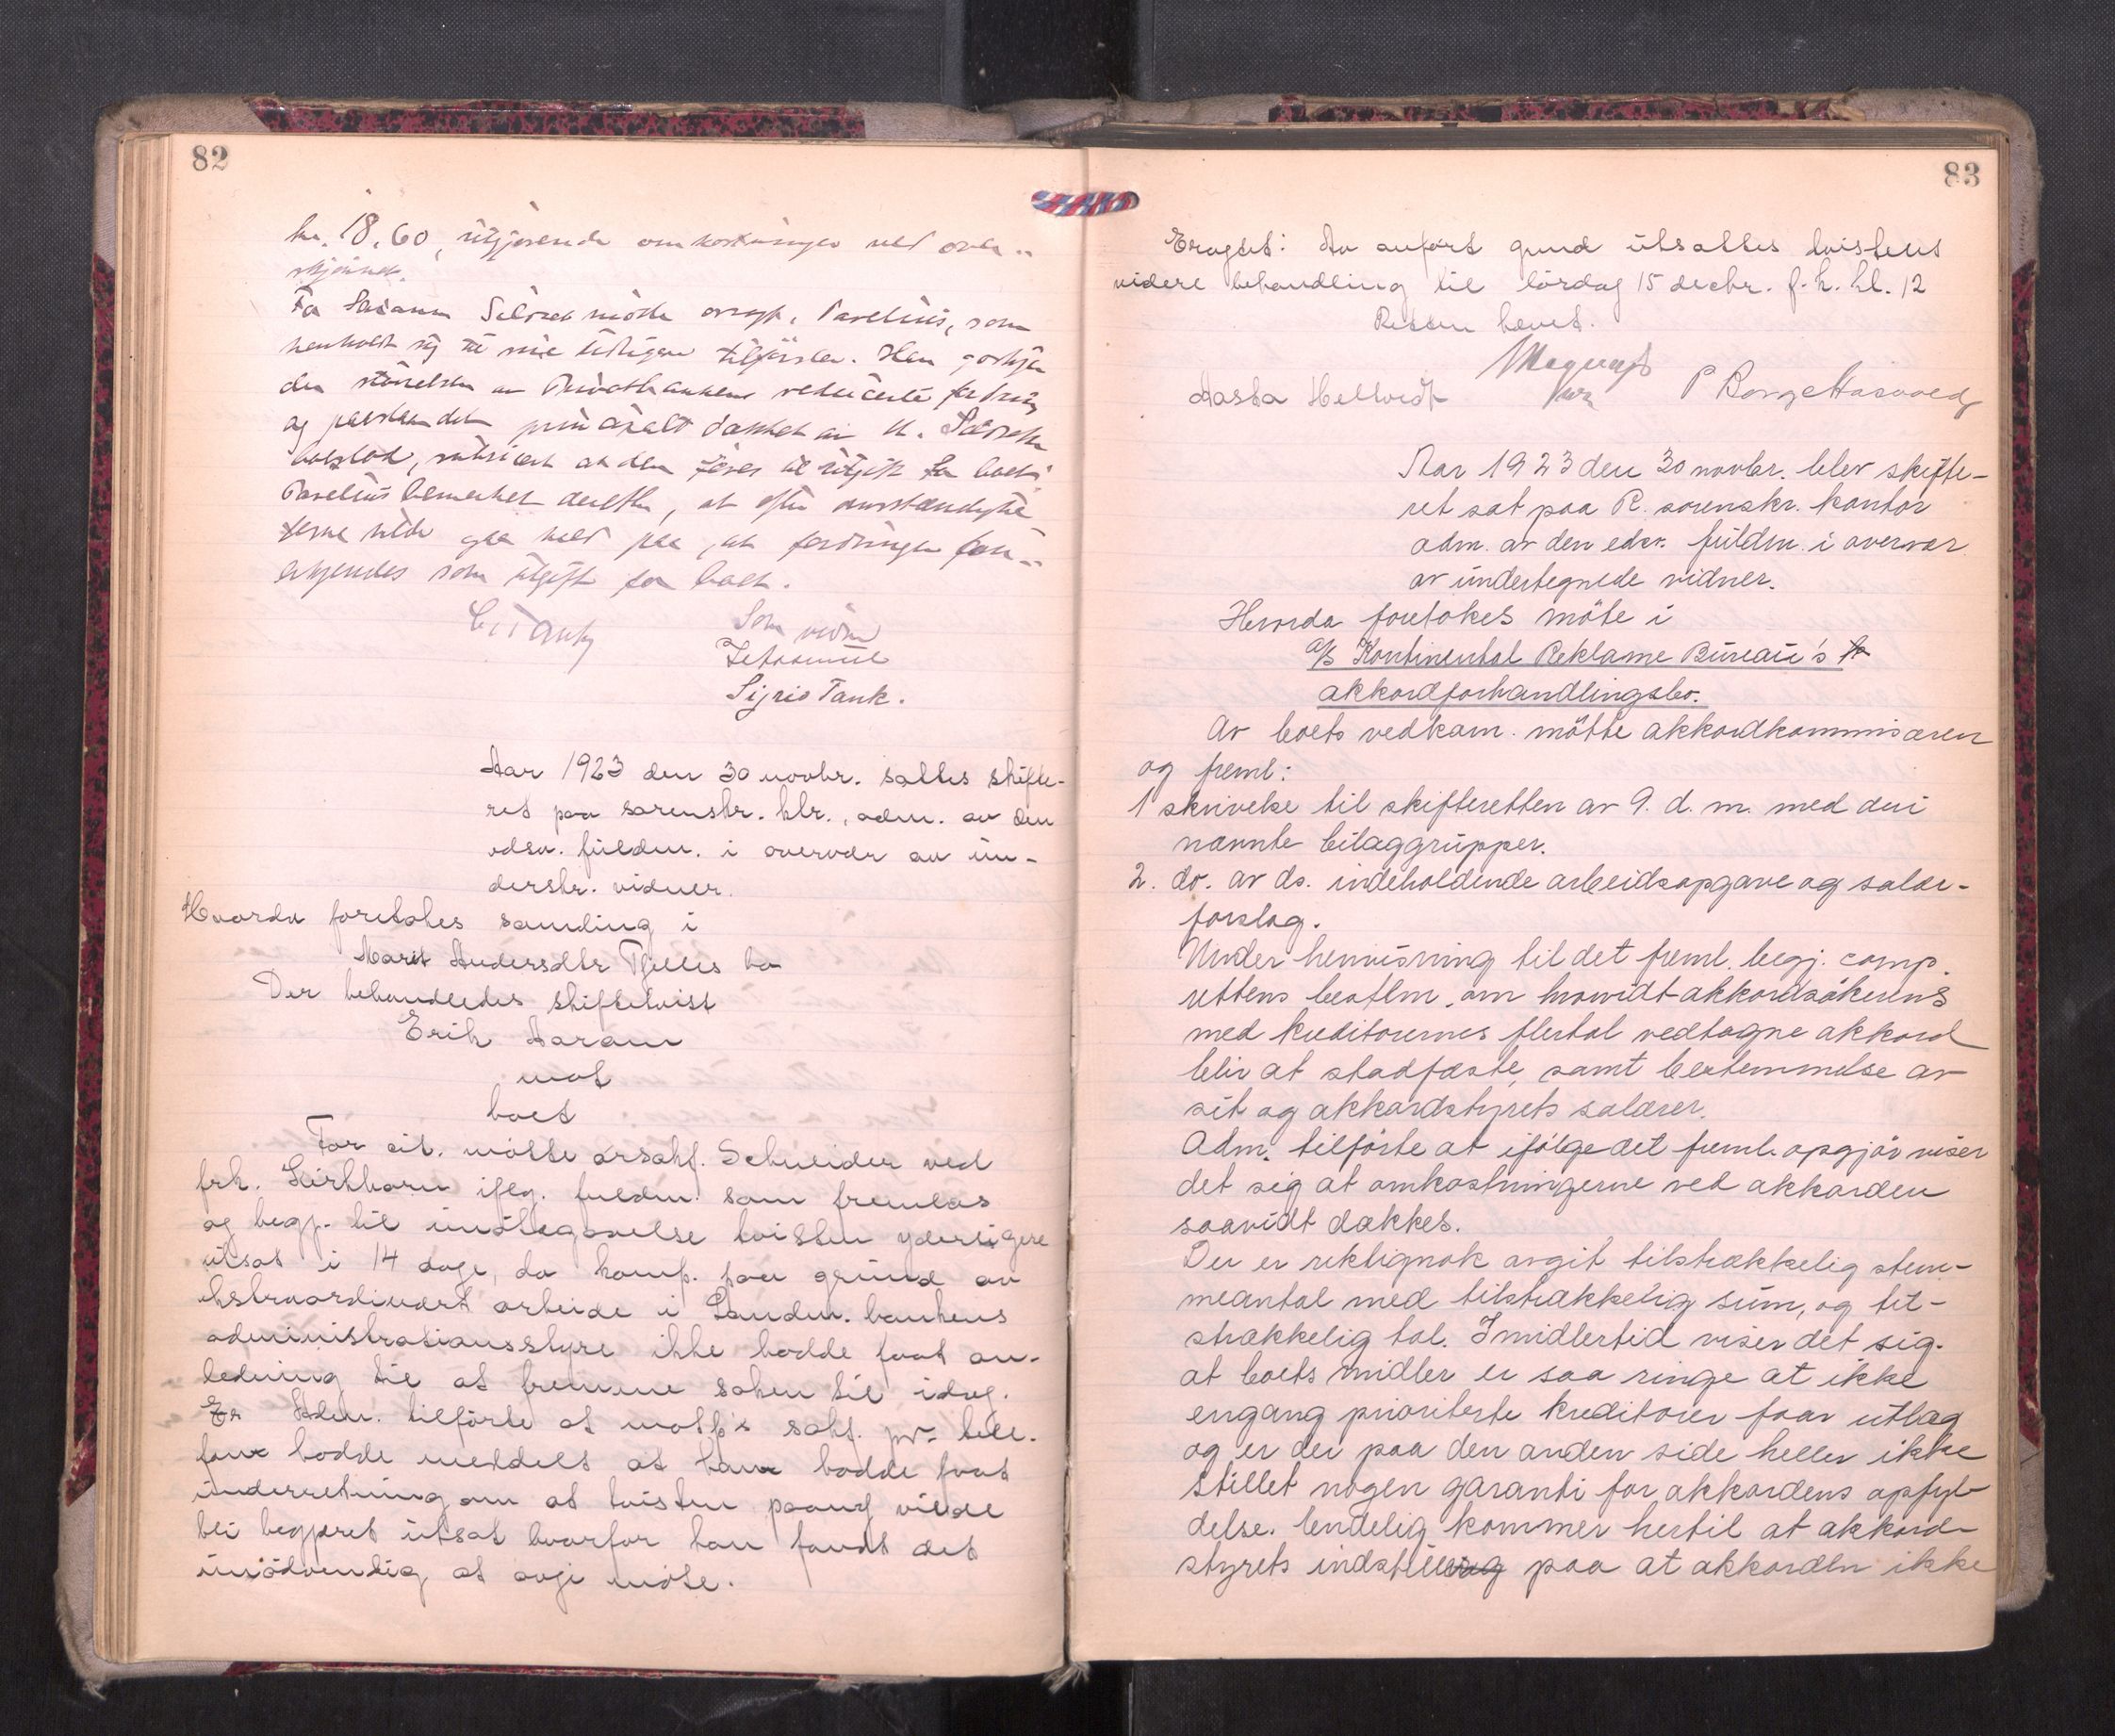 82
kr. 18,60, utgjørende omkostninger ved over-
skjønnet.
For møtte overrsf. Parelius, som
henholdt sig til sine tidligere tilførsler. Han
den størrelsen av Privatbankens reducerte fordring
og paastaar den principalt dækket av
bolod, subsidiært at den føres til utgift for boet.
Parelius bemerket derefter, at efter omstændighe-
terne vilde gaa med paa, at fordringen
som utgift for boet.
Som vidne
Sigrid Tank.
Aar 1923 den 30 novbr. sattes skifte-
ret paa sorenskr. ktr., adm. av den
edsv. fuldm. i overvær av un-
derskr. vidner.
Hvorda foretokes samling i
Marit Andersdtr Tjelles bo
Der behandledes skiftetvist
Erik Aaram
mot
boet
For cit. møtte orsakf. Schneider ved
frk. Kirkhorn iflg. fuldm. som fremlas
og begj. til imøtegaaelse tvisten yderligere
utsat i 14 dage, da komp. paa grund av
ekstraordinært arbeide i Landm. bankens
administrationsstyre ikke hadde faat an-
ledning til at fremme saken til idag.
Adm. tilførte at motp's sakf. pr. tele-
fon hadde meddelt at han hadde faat
underretning om at tvisten paany vilde
bli begjæret utsat hvorfor han fandt det
unødvendig at avgi møte.
83
Eragtet: Av anført grund utsattes tvistens
videre behandling til lørdag 15 decbr. f. k. kl. 12
Retten hævet.
Aasta Hellvedt
Aar 1923 den 30 novbr. blev skifte-
ret sat paa R. sorenskr. kontor
adm. av den edsv. fuldm. i overvær
av undertegnede vidner.
Hvorda foretokes møte i
A/S Kontinental Reklame Bureau's
akkordforhandlingsbo.
Av boets vedkom. møtte akkordkommisæren
og freml:
1 skrivelse til skifteretten av 9. d. m. med deri
nævnte bilaggrupper.
2. do. av ds. indeholdende arbeidsopgave og salær-
forslag.
Under henvisning til det freml. begj. comp.
rettens bestem. om hvorvidt akkordsøkerens
med kreditorernes flertal vedtagne akkord
blir at stadfæste, samt bestemmelse av
sit og akkordstyrets salærer.
Adm. tilførte at ifølge det freml. opgjør viser
det sig at omkostningerne ved akkorden
saavidt dækkes.
Der er riktignok avgit tilstrækkelig stem-
meantal med tilstrækkelig sum, og til-
strækkelig tal. Imidlertid viser det sig
at boets midler er saa ringe at ikke
engang prioriterte kreditorer faar utlæg
og er der paa den anden side heller ikke
stillet nogen garanti for akkordens opfyl-
delse. Endelig kommer hertil at akkord-
styrets indstilling paa at akkorden ikke